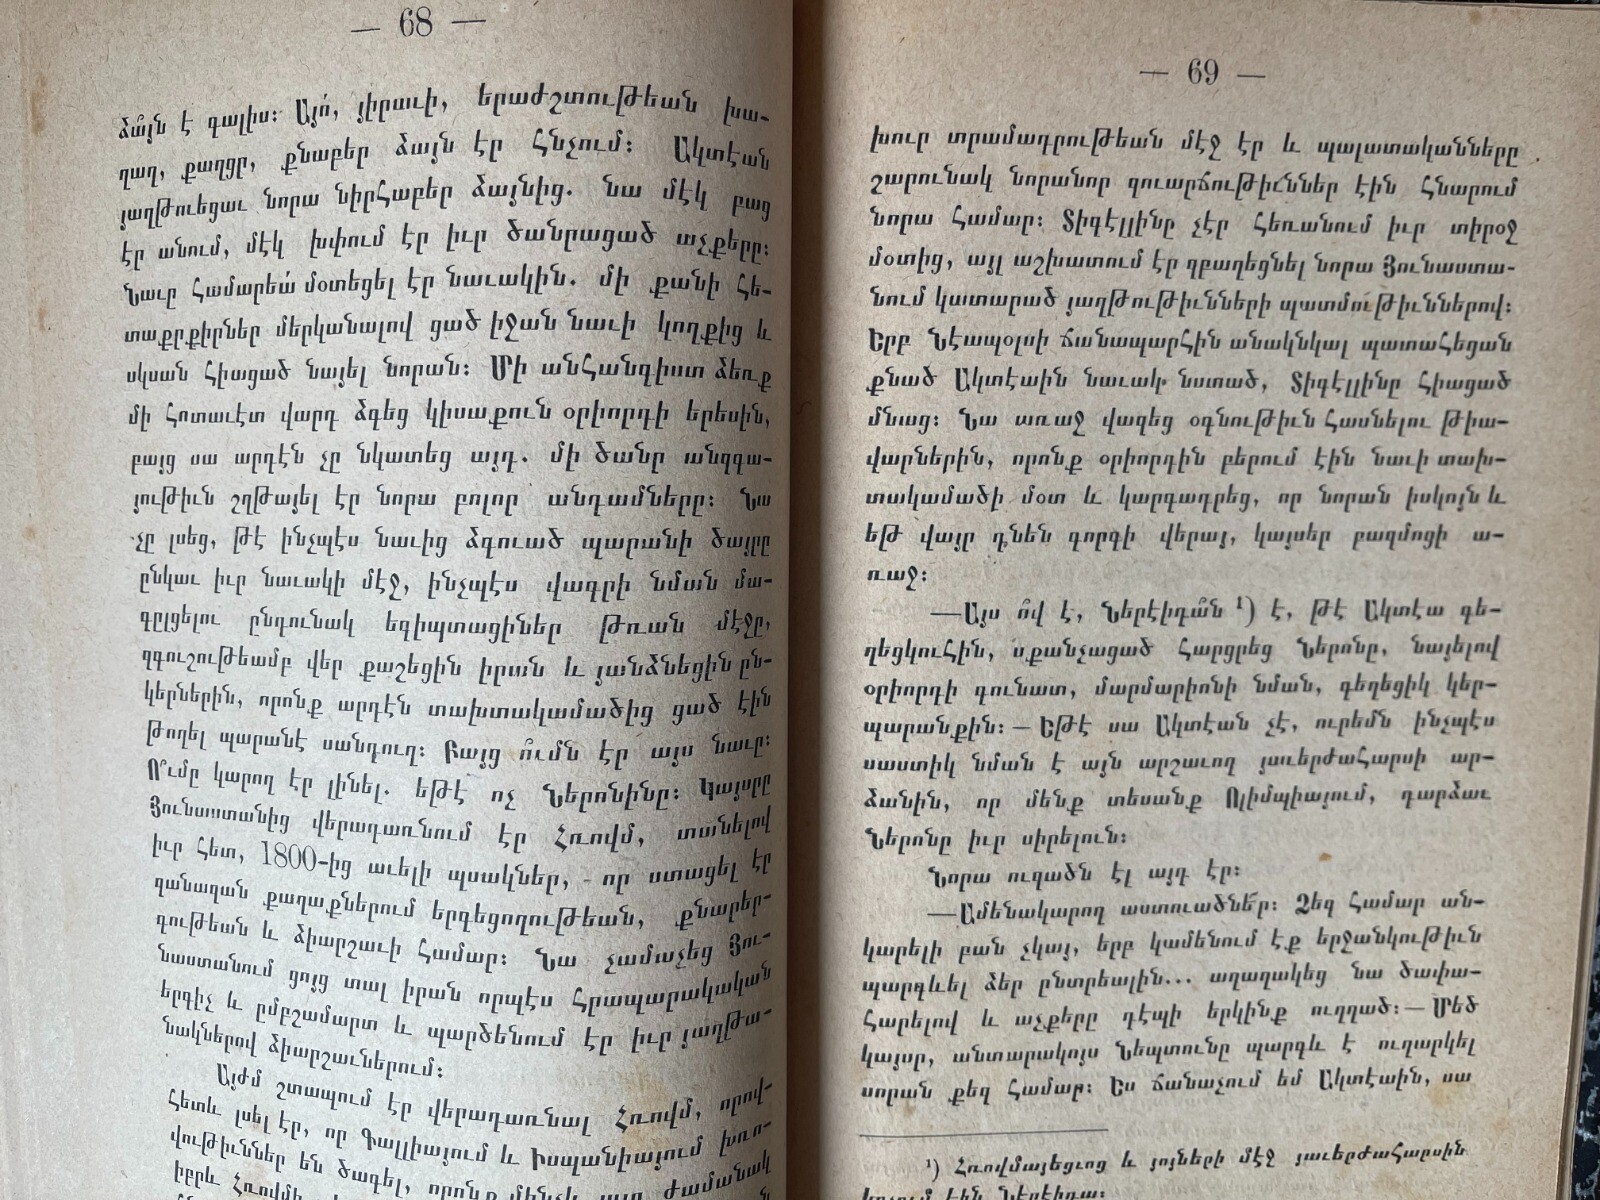 — 68 —
ձա՞յն է գալիս։ Այո՛, յիրաւի, երաժշտութեան խա-
ղաղ, քաղցր, քնաբեր ձայն էր հնչում։ Ակտէան
յաղթուեցաւ նորա նիրհաբեր ձայնից. նա մէկ բաց
էր անում, մէկ խփում էր իւր ծանրացած աչքերը։
Նաւը համարեա՛ մօտեցել էր նաւակին. մի քանի հե-
տաքրքիրներ մերկանալով ցած իջան նաւի կողքից և
սկսան հիացած նայել նորան։ Մի անհանգիստ ձեռք
մի հոտաւէտ վարդ ձգեց կիսաքուն օրիորդի երեսին,
բայց սա արդէն չը նկատեց այդ. մի ծանր անզգա-
յութիւն շղթայել էր նորա բոլոր անդամները։ Նա
չը լսեց, թէ ինչպէս նաւից ձգուած պարանի ծայրը
ընկաւ իւր նաւակի մէջ, ինչպէս վագրի նման մա-
գըլցելու ընդունակ եգիպտացիներ թռան մէջը,
զգուշութեամբ վեր քաշեցին իրան և յանձնեցին ըն-
կերներին, որոնք արդէն տախտակամածից ցած էին
թողել պարանէ սանդուղ։ Բայց ո՞ւմն էր այս նաւը։
Ո՞ւմը կարող էր լինել. եթէ ոչ Ներոնինը։ Կայսրը
Յունաստանից վերադառնում էր Հռովմ, տանելով
իւր հետ, 1800-ից աւելի պսակներ, - որ ստացել էր
զանազան քաղաքներում երգեցողութեան, քնարեր-
գութեան և ձիարշաւի համար։ Նա չամաչեց Յու-
նաստանում ցոյց տալ իրան որպէս հրապարակական
երգիչ և ըմբշամարտ և պարծենում էր իւր յաղթա-
նակներով ձիարշաւներում։
Այժմ շտապում էր վերադառնալ Հռովմ, որով-
հետև լսել էր, որ Գալլիայում և Իսպանիայում խռո-
վութիւններ են ծագել, որոնք մինչև այդ ժամանակ
— 69 —
խուր տրամադրութեան մէջ էր և պալատականները
շարունակ նորանոր զուարճութիւններ էին հնարում
նորա համար։ Տիգէլլինը չէր հեռանում իւր տիրօջ
մօտից, այլ աշխատում էր զբաղեցնել նորա Յունաստա-
նում կատարած յաղթութիւնների պատմութիւններով։
Երբ Նէապօլսի ճանապարհին անակնկալ պատահեցան
քնած Ակտէաին նաւակ նստած, Տիգէլլինը հիացած
մնաց։ Նա առաջ վազեց օգնութիւն հասնելու թիա-
վարներին, որոնք օրիորդին բերում էին նաւի տախ-
տակամածի մօտ և կարգադրեց, որ նորան իսկոյն և
եթ վայր դնեն գորգի վերայ, կայսեր բազմոցի ա-
ռաջ։
—Այս ո՞վ է, Ներէիդա՞ն ¹) է, թէ Ակտէա գե-
ղեցկուհին, սքանչացած հարցրեց Ներոնը, նայելով
օրիորդի գունատ, մարմարիոնի նման, գեղեցիկ կեր-
պարանքին։ — Եթէ սա Ակտէան չէ, ուրեմն ինչպէս
սաստիկ նման է այն արշաւող յաւերժահարսի ար-
ձանին, որ մենք տեսանք Ոլիմպիայում, դարձաւ
Ներոնը իւր սիրելուն։
Նորա ուզածն էլ այդ էր։
—Ամենակարող աստուածնե՜ր։ Ձեզ համար ան-
կարելի բան չկայ, երբ կամենում էք երջանկութիւն
պարգևել ձեր ընտրեալին... աղաղակեց նա ծափա-
հարելով և աչքերը դէպի երկինք ուղղած։— Մեծ
կայսր, անտարակոյս Նեպտունը պարգև է ուղարկել
սորան քեզ համար։ Ես ճանաչում եմ Ակտէաին, սա
¹) Հռովմայեցւոց և յոյների մէջ յաւերժահարսին